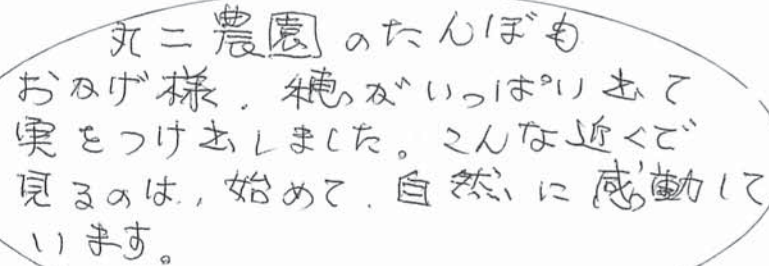 丸二農園のたんぼも
おかげ様、穂がいっぱい出て
実をつけ出しました。こんな近くで
見るのは、始めて、自然に感動して
います。